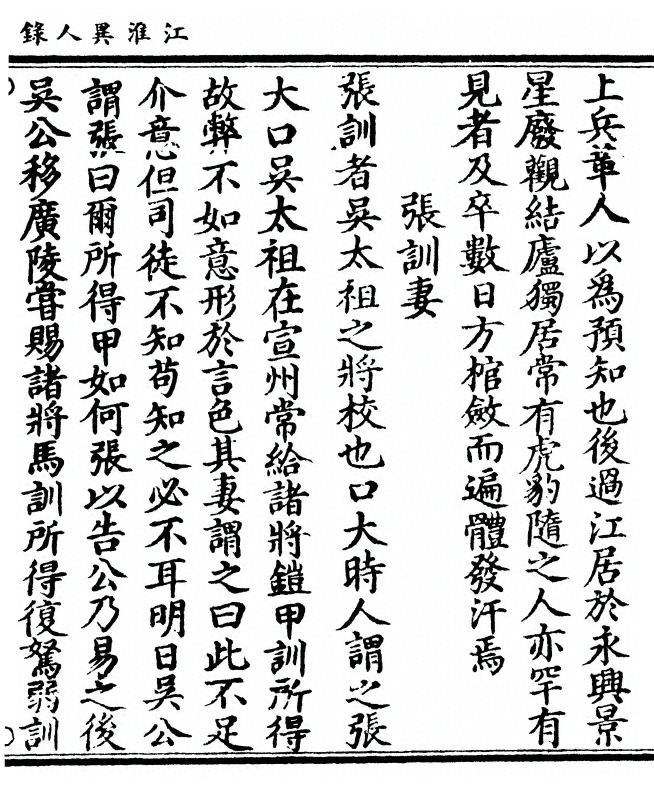 江淮異人錄
上兵革人以爲預知也後過江居於永興景
星廢觀結廬獨居常有虎豹隨之人亦罕有
見者及卒數日方棺斂而遍體發汗焉
張訓妻
張訓者吳太祖之將校也口大時人謂之張
大口吳太祖在宣州常給諸將鎧甲訓所得
故弊不如意形於言色其妻謂之曰此不足
介意但司徒不知苟知之必不耳明日吳公
謂張曰爾所得甲如何張以告公乃易之後
吳公移廣陵嘗賜諸將馬訓所得復駑弱訓